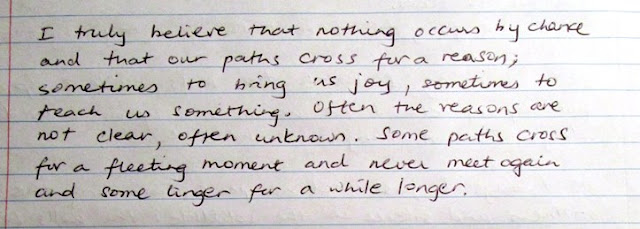 I truly believe that nothing occurs by chance
and that our paths cross for a reason;
sometimes to bring us joy, sometimes to
teach us something. Often the reasons are
not clear, often unknown. Some paths cross
for a fleeting moment and never meet again
and some linger for a while longer.